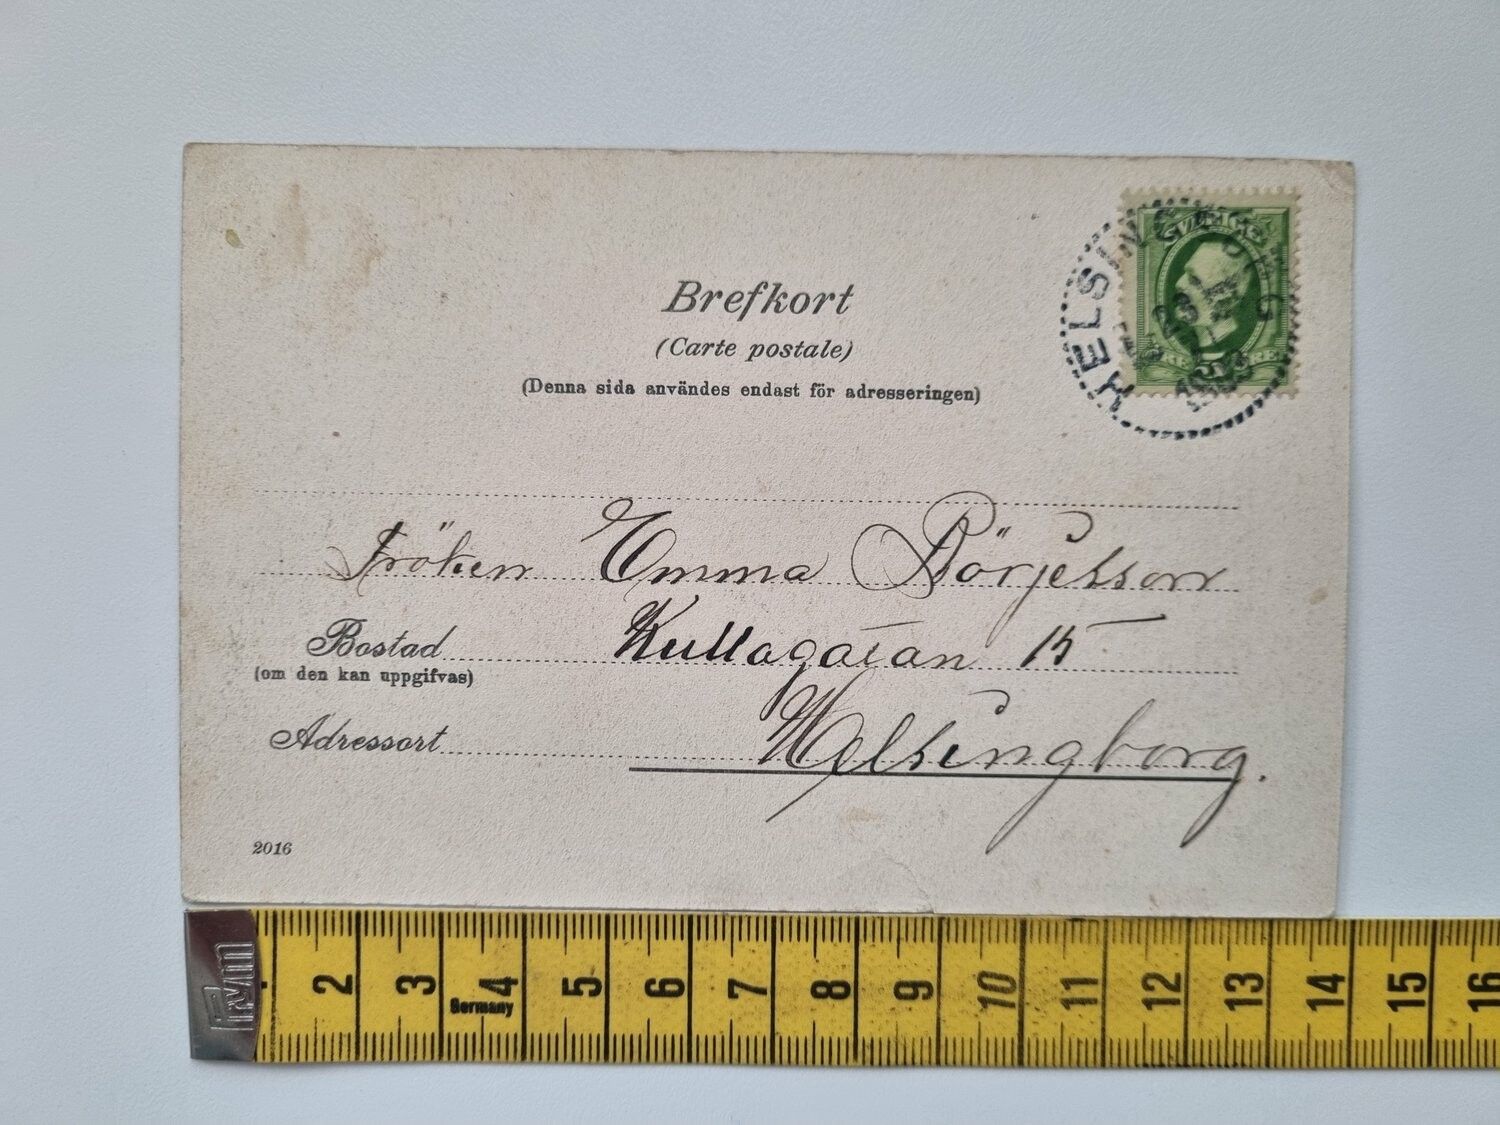 SVERIGE
HELSINGBORG
23
1903
Brefkort
(Carte postale)
(Denna sida användes endast för adresseringen)
Fröken Emma Börjesson
Bostad Kullagatan 15
(om den kan uppgifvas)
Adressort Helsingborg.
2016
Prym
2 3 4 5 6 7 8 9 10 11 12 13 14 15 16
Germany